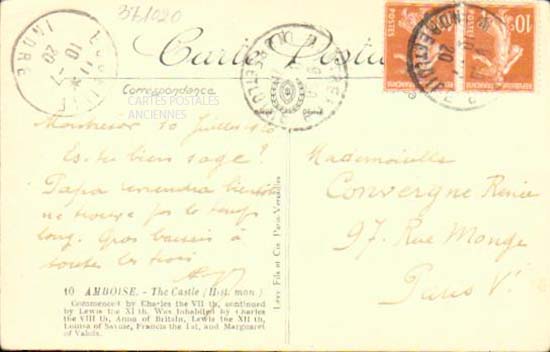 371020
Carte Postale
Correspondance
CARTES POSTALES
ANCIENNES
INDRE
10 -7
20
10c
POSTES
REPUBLIQUE FRANCAISE
Montresor 10 Juillet 20
Es-tu bien sage ?
Papa reviendra bientôt
ne trouve pas le temps
long. Gros baisers à
toutes les trois
Mademoiselle
Convergne Renée
97. Rue Monge
Paris V
Levy Fils et Cie Paris-Versailles
10 AMBOISE. - The Castle (Hist. mon.)
Commenced by Charles the VII th, continued
by Lewis the XI th. Was Inhabited by Charles
the VIII th, Anna of Britain, Lewis the XII th,
Louisa of Savoie, Francis the Ist, and Margaret
of Valois.